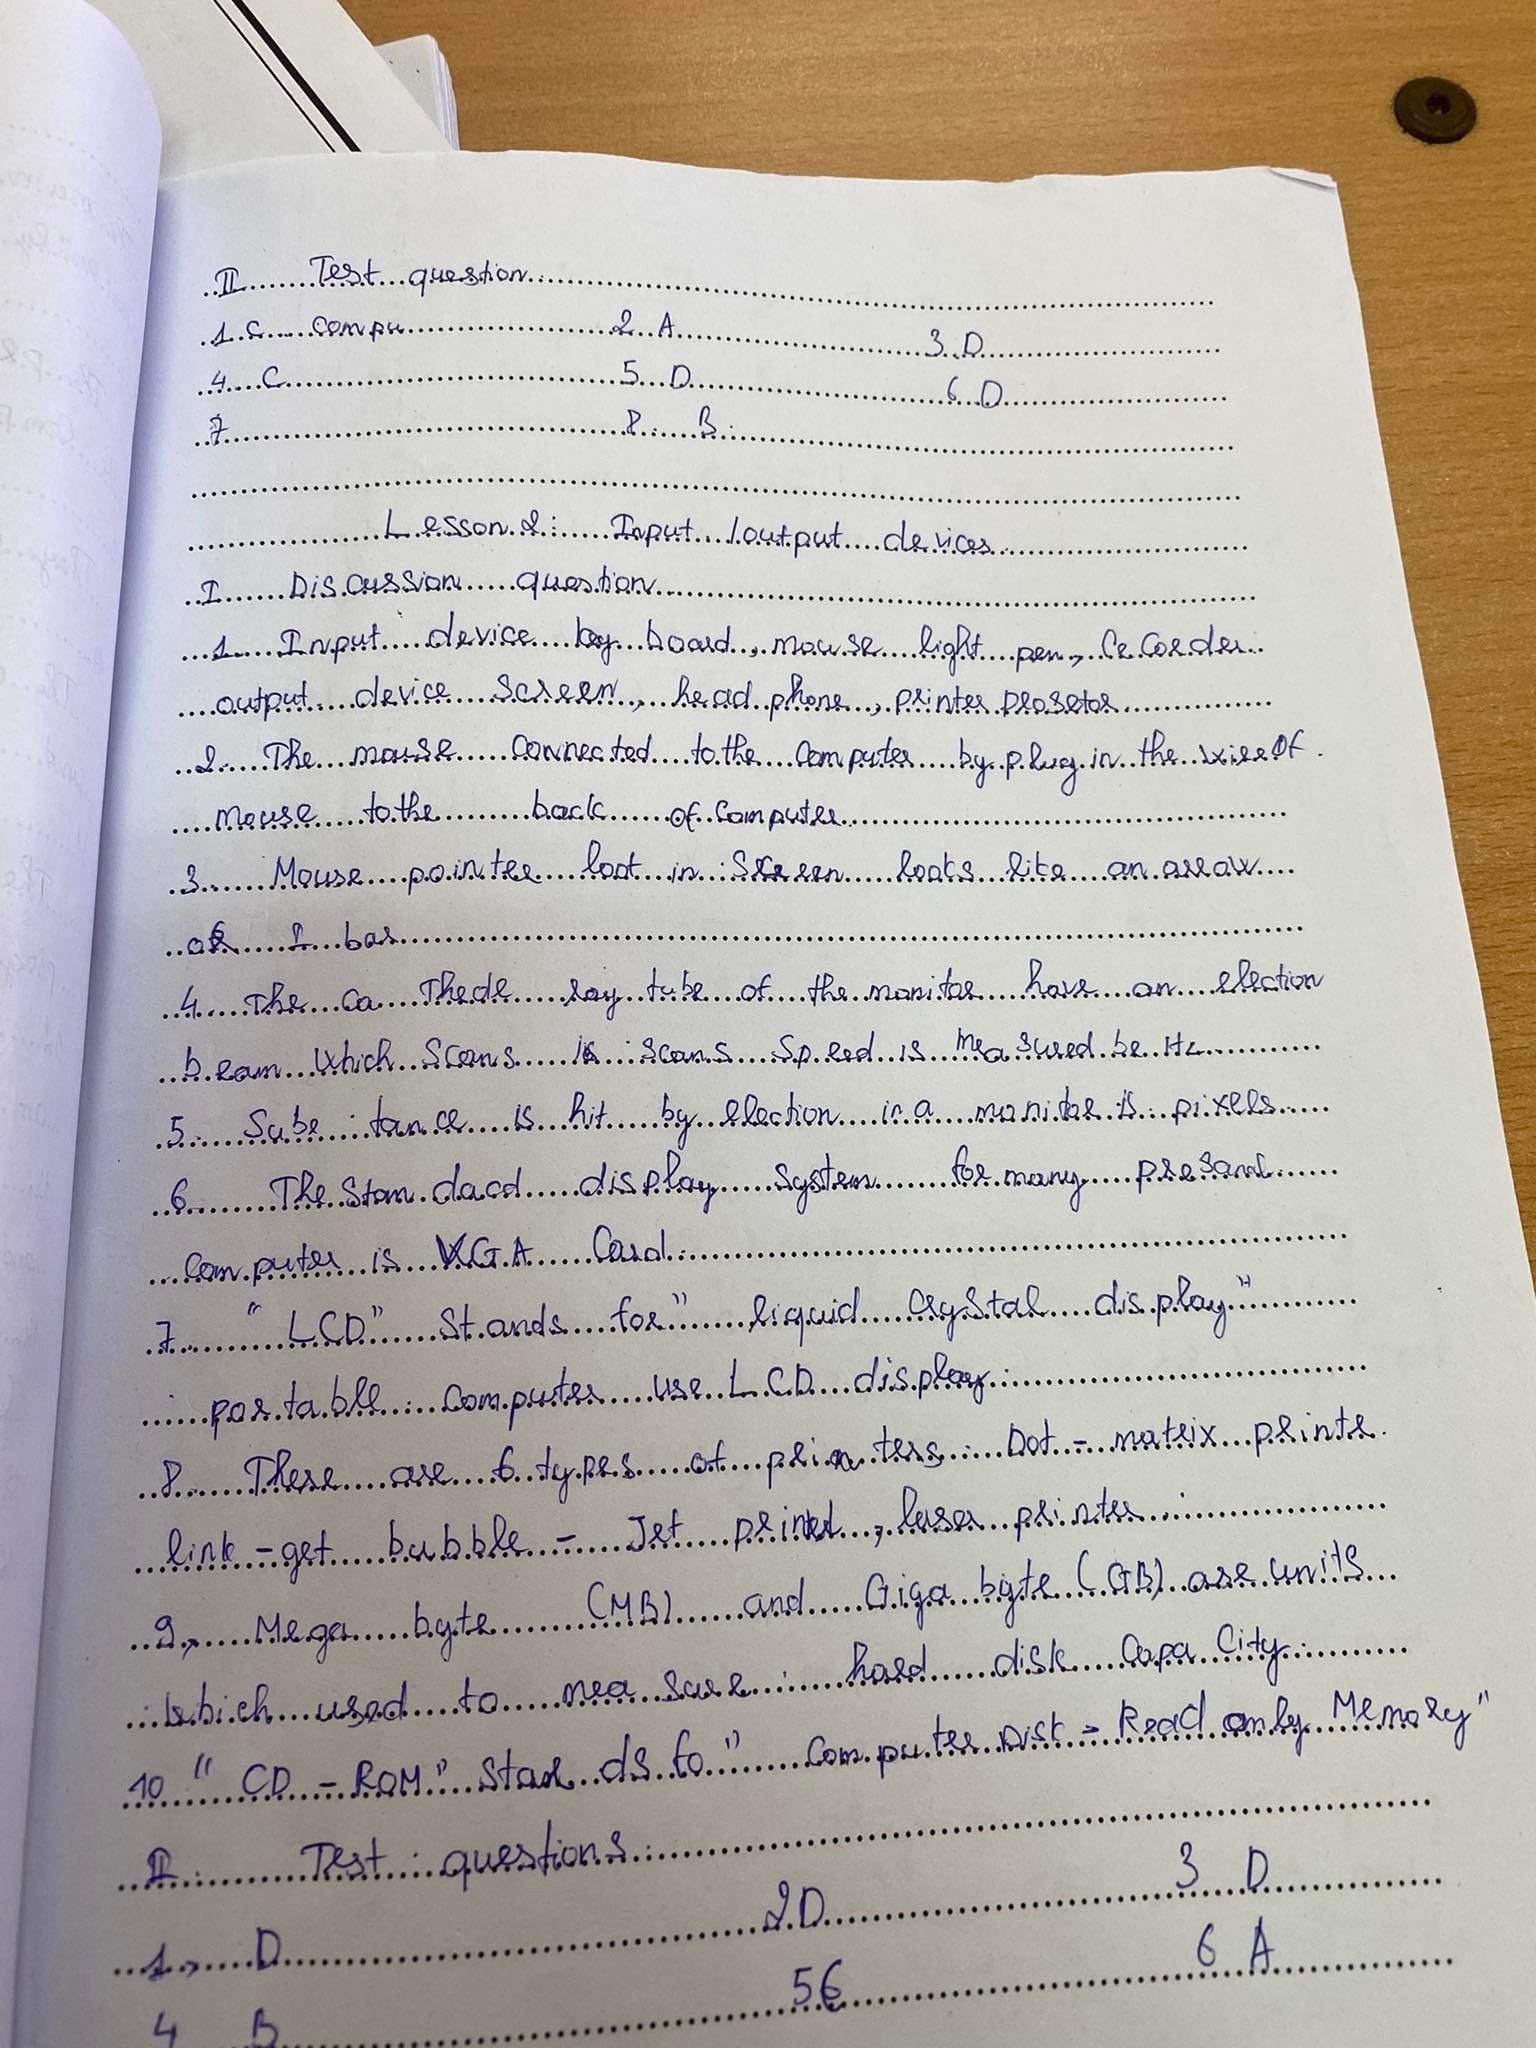 II Test question
1. C compu 2 A 3. D
4. C 5 D 6 D
7 8. B
Lesson 2: Input /output devices
I Discussion question
1. Input device key board, mouse light pen, Cecorder
output device screen, head phone, printer prosetor
2. The mouse connected to the computer by plug in the wire of
mouse to the back of computer
3 Mouse pointer loot in screen loots lite an arrow
or I bar
4 The ca Thede ray tube of the monitor have an election
beam which scans is scans speed is measured be Hz
5 Sube tance is hit by election in a monitor is pixels
6 The standacd display system for many presanl
computer is VGA Card
7 "LCD" Stands for" liquid crystal display"
portable computer use LCD display
8 These are 6 types of printers. Dot - matrix printe
link - get bubble - Jet printed, laser printer
9, Mega byte (MB) and Giga byte (GB) are units
which used to mea sure hard disk Capa City
10 " CD - ROM" Stan ds fo" Computer Dist - Read only Memory"
II. Test questions
1, D 2 D 3 D
4 B 5 C 6 A